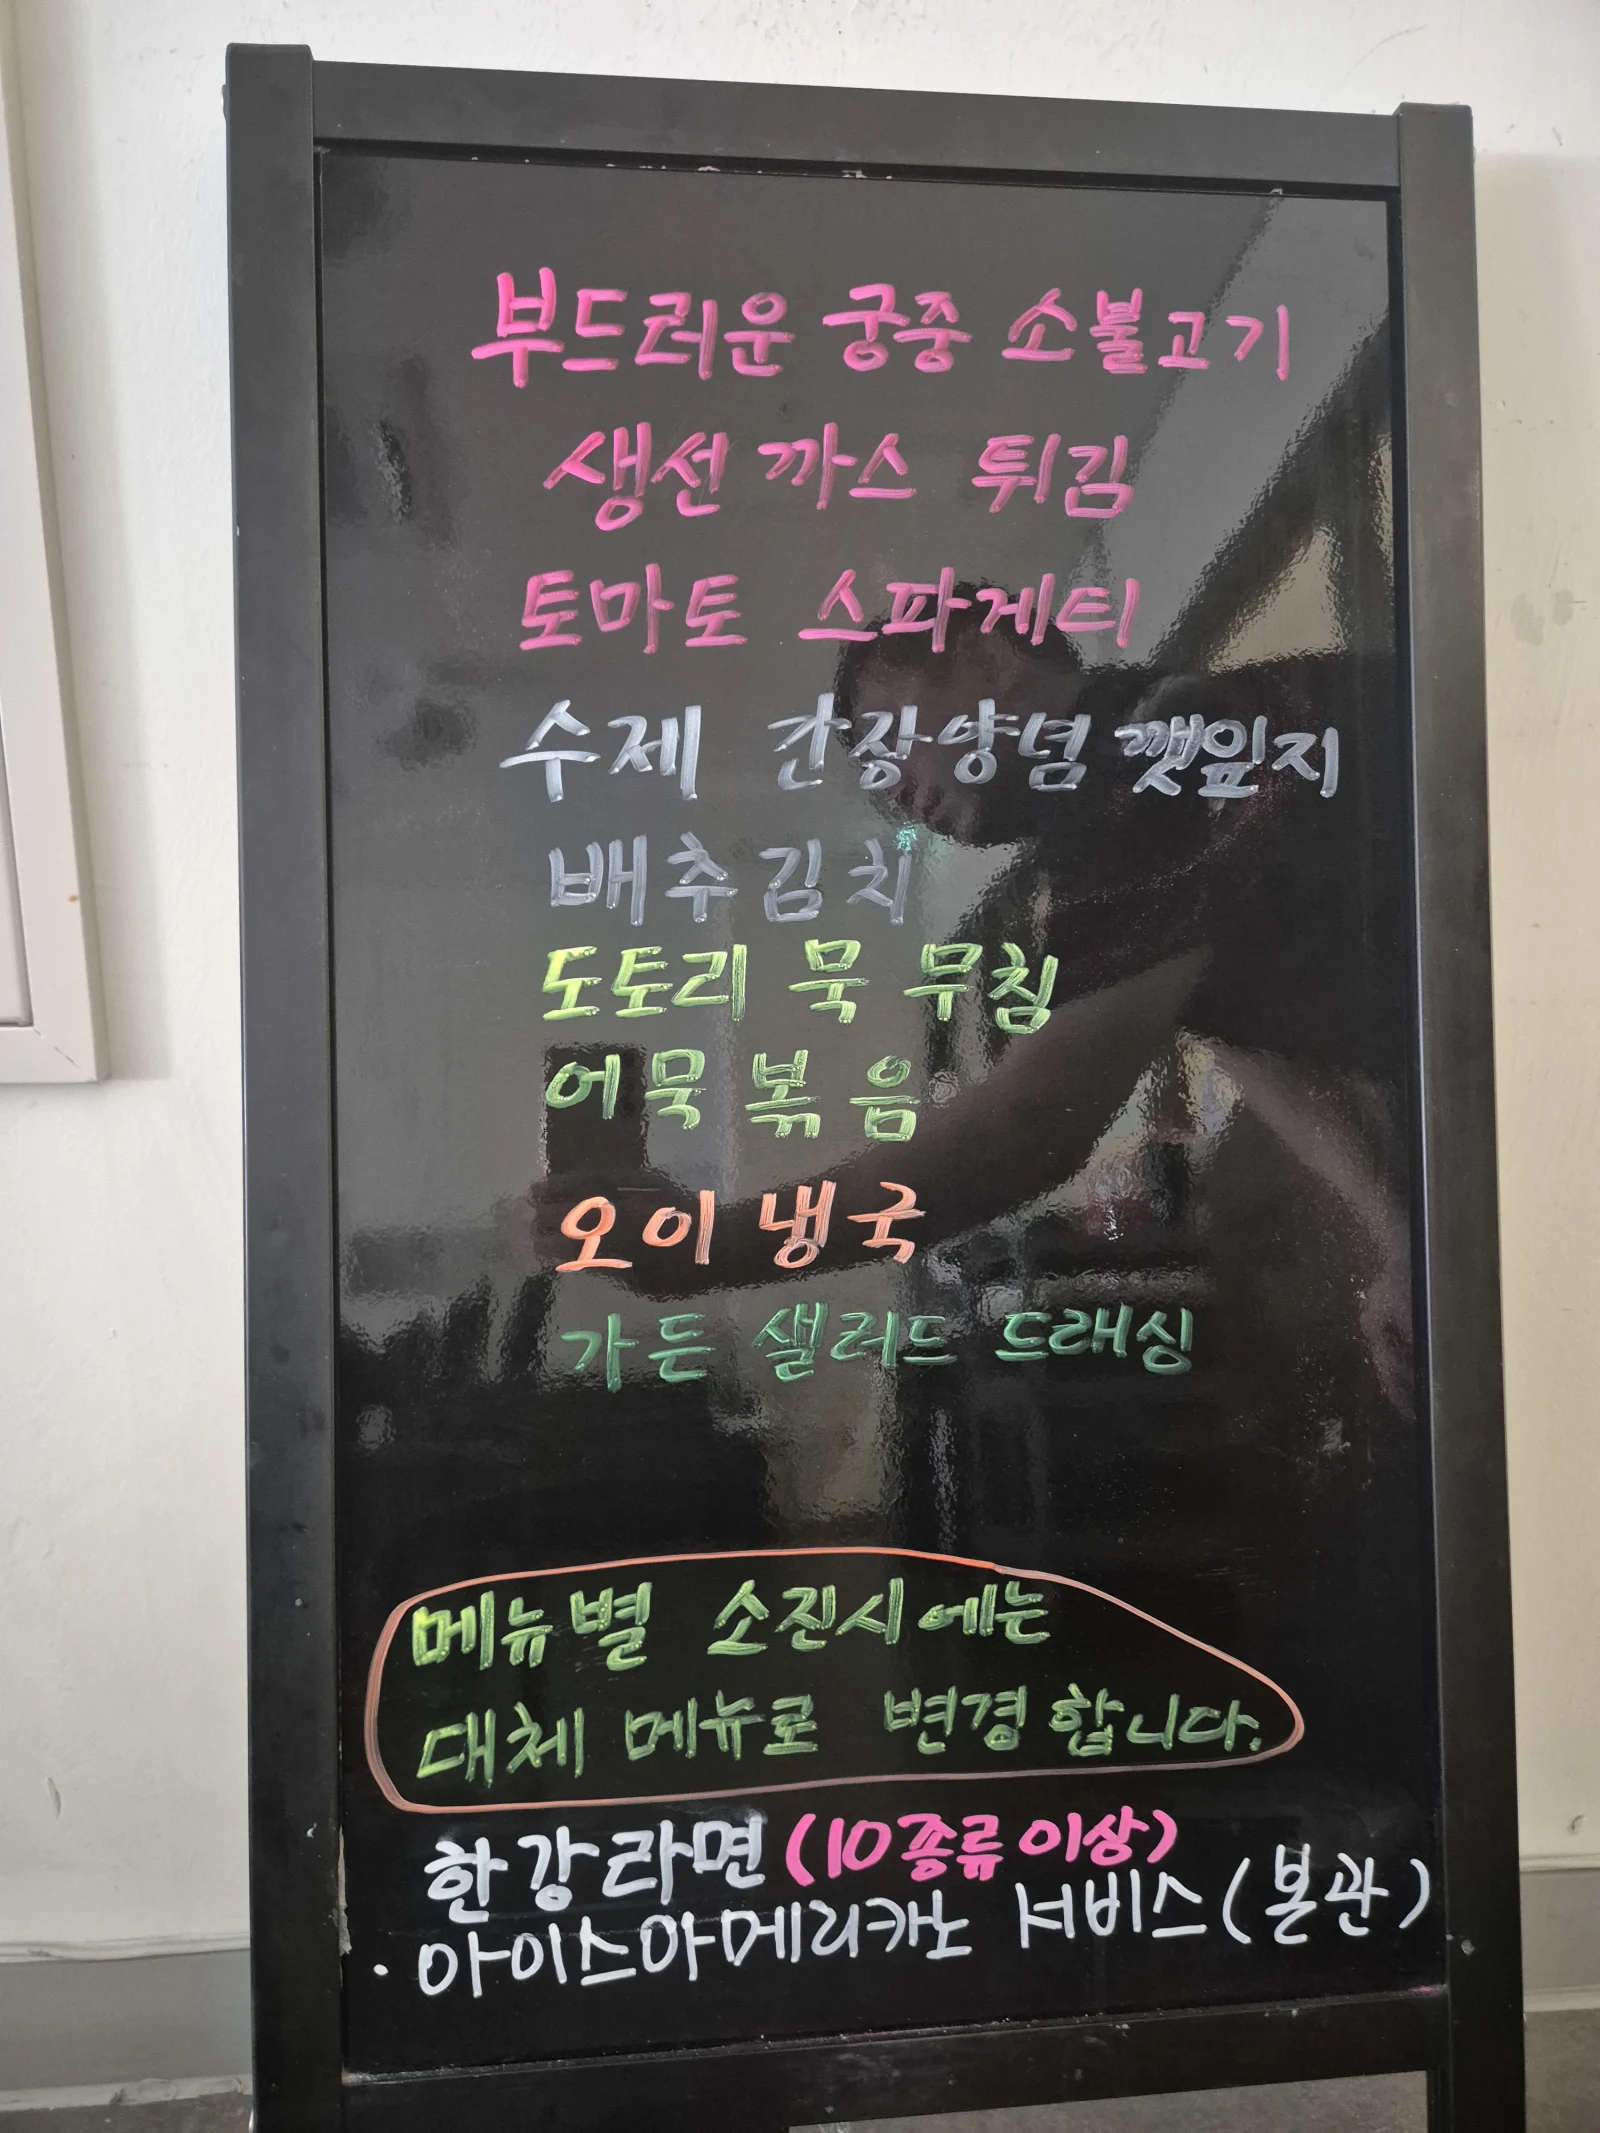 부드러운 궁중 소불고기
생선까스 튀김
토마토 스파게티
수제 간장양념 깻잎지
배추김치
도토리 묵 무침
어묵볶음
오이냉국
가든 샐러드 드래싱
메뉴별 소진시에는
대체 메뉴로 변경합니다.
한강라면 (10종류이상)
· 아이스아메리카노 서비스(본관)